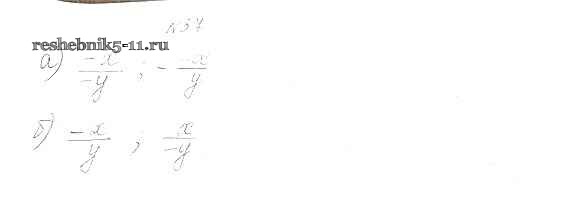 №37
reshebnik5-11.ru
а) -x/-y ; - -x/y
б) -x/y ; x/-y